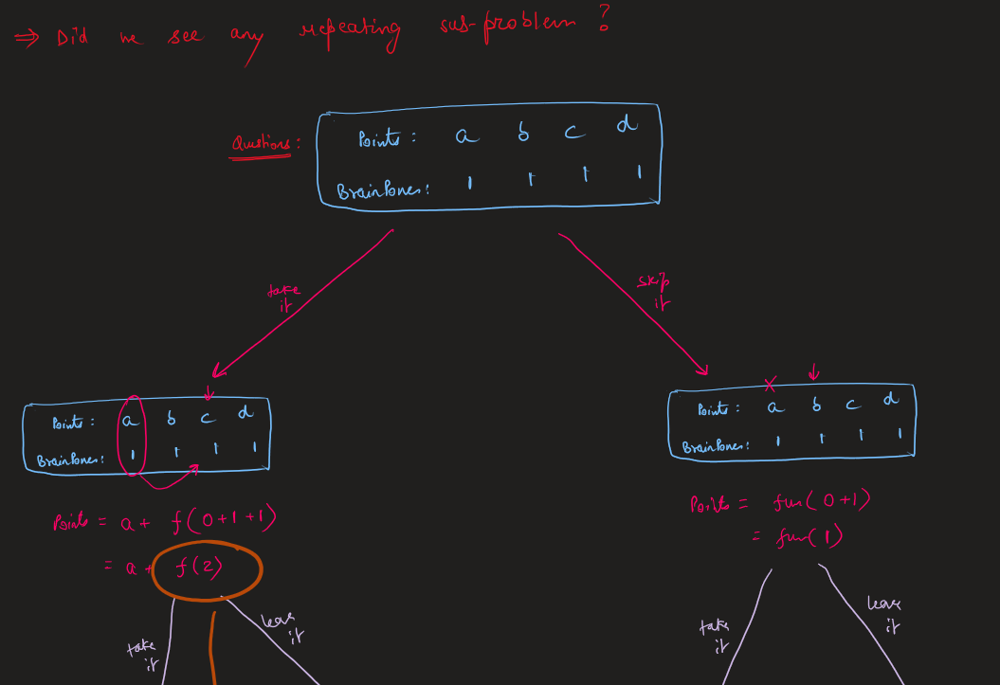 ⇒ Did we see any repeating sub-problem ?
Questions:
Points : a b c d
BrainPower: 1 1 1 1
take it
skip it
Points : a b c d
BrainPower: 1 1 1 1
Points = a + f(0+1+1)
= a + f(2)
take it
leave it
Points : a b c d
BrainPower: 1 1 1 1
Points = fun(0+1)
= fun(1)
take it
leave it